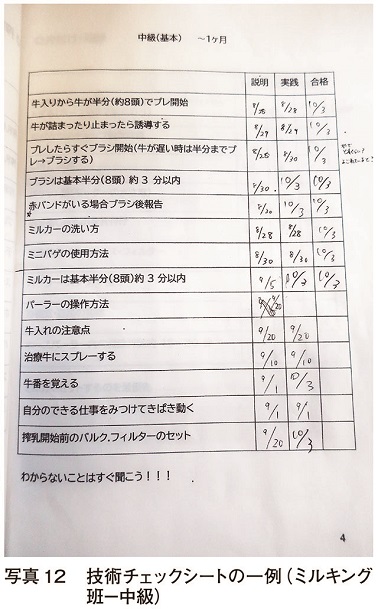 中級(基本)　～1ヶ月
説明 実践 合格
牛入りから牛が半分(約8頭)でプレ開始 8/28 10/3
牛が詰まったり止まったら誘導する 8/29 8/29 10/3
プレしたらすぐブラシ開始(牛が遅い時は半分までプ
レ→ブラシする) 8/30 10/3
ブラシは基本半分(8頭)約 3 分以内 8/30 10/3 10/3
赤バンドがいる場合ブラシ後報告 8/30 10/3 10/3
ミルカーの洗い方 8/28 8/28 10/3
ミニバケの使用方法 8/30 8/30 10/3
ミルカーは基本半分(8頭)約 3 分以内 9/5 10/3 10/3
パーラーの操作方法 9/20
牛入れの注意点 9/20 9/20
治療牛にスプレーする 9/10 9/10
牛番を覚える 9/1 10/3
自分のできる仕事をみつけてきぱき動く 9/1 9/1
搾乳開始前のバルク.フィルターのセット 9/20 10/3
わからないことはすぐ聞こう！！！
4
写真12　技術チェックシートの一例（ミルキング
班ー中級）